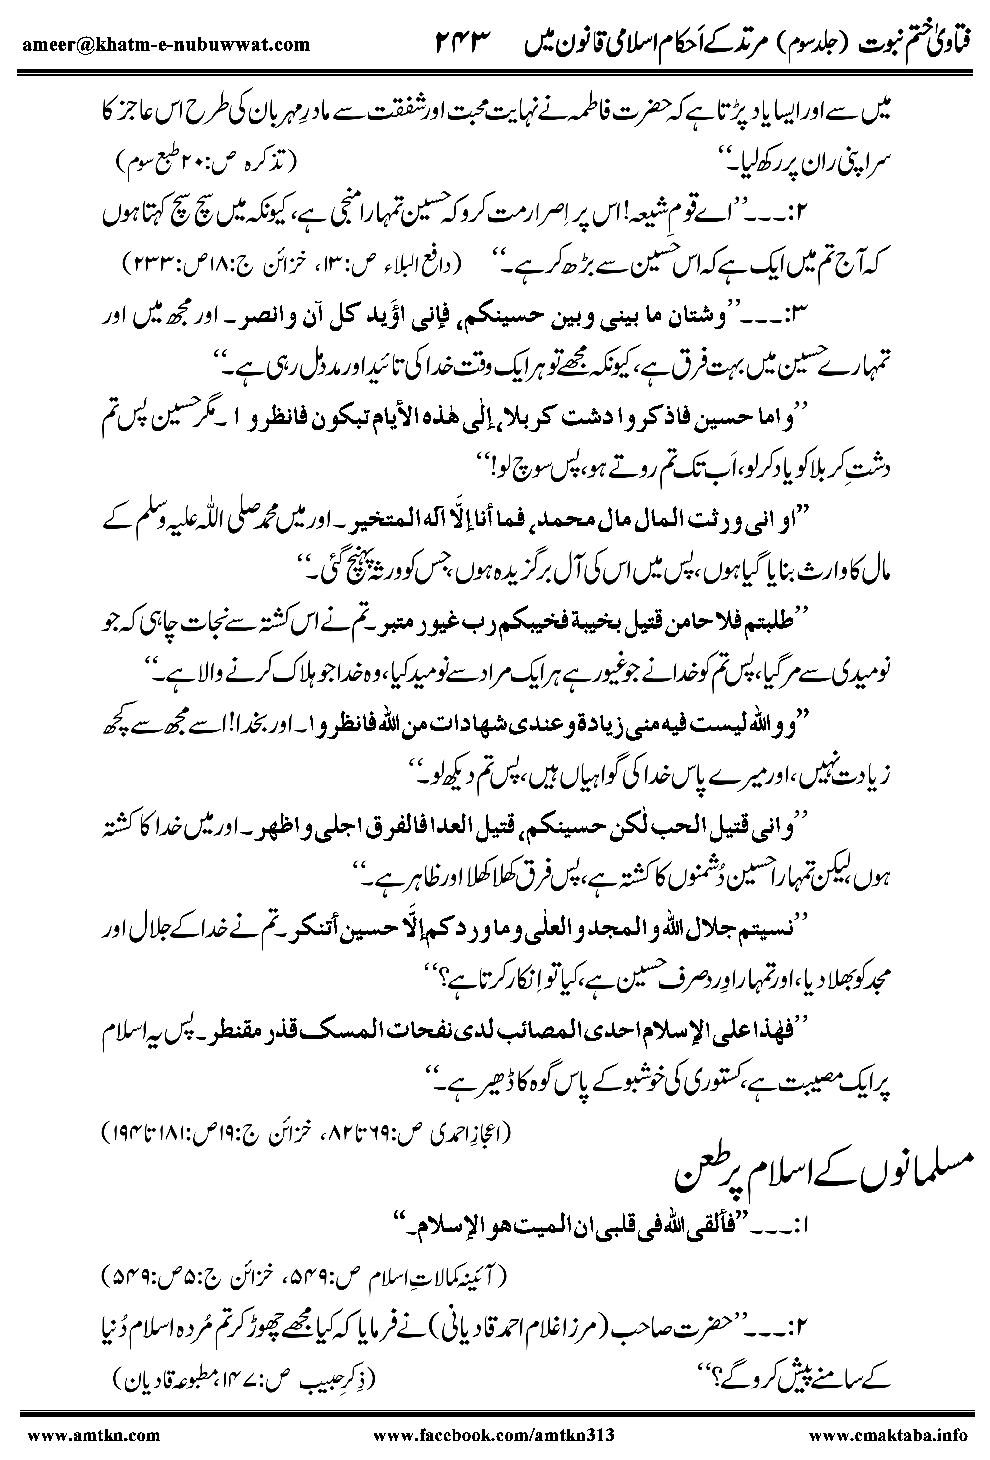 فتاویٰ ختم نبوت (جلد سوم) مرتد کے أحکام اسلامی قانون میں ۲۴۳ ameer@khatm-e-nubuwwat.com
میں سے اور ایسا یاد پڑتا ہے کہ حضرت فاطمہ نے نہایت محبت اور شفقت سے مادرِ مہربان کی طرح اس عاجز کا
سر اپنی ران پر رکھ لیا۔‘‘ (تذکرہ ص:۲۰ طبع سوم)
۲:۔۔۔’’اے قومِ شیعہ! اس پر اِصرار مت کرو کہ حسین تمہارا منجی ہے، کیونکہ میں سچ سچ کہتا ہوں
کہ آج تم میں ایک ہے کہ اس حسین سے بڑھ کر ہے۔‘‘ (دافع البلاء ص:۱۳، خزائن ج:۱۸ص:۲۳۳)
۳:۔۔۔’’وشتان ما بینی وبین حسینکم، فإنی اؤَید کل آن وانصر۔ اور مجھ میں اور
تمہارے حسین میں بہت فرق ہے، کیونکہ مجھے تو ہر ایک وقت خدا کی تائید اور مدد مل رہی ہے۔‘‘
’’واما حسین فاذکروا دشت کربلا، إلٰی ھٰذہ الأیام تبکون فانظروا۔ مگر حسین پس تم
دشتِ کربلا کو یاد کرلو، اَب تک تم روتے ہو، پس سوچ لو!‘‘
’’او انی ورثت المال مال محمد، فما أنا إلَّا آلہ المتخیر۔ اور میں محمد صلی اللہ علیہ وسلم کے
مال کا وارث بنایا گیا ہوں، پس میں اس کی آل برگزیدہ ہوں، جس کو ورثہ پہنچ گئی۔‘‘
’’طلبتم فلاحا من قتیل بخیبة فخیبکم رب غیور متبر۔ تم نے اس کشتہ سے نجات چاہی کہ جو
نومیدی سے مرگیا، پس تم کو خدا نے جو غیور ہے ہر ایک مراد سے نومید کیا، وہ خدا جو ہلاک کرنے والا ہے۔‘‘
’’وواللہ لیست فیہ منی زیادة وعندی شھادات من اللہ فانظروا۔ اور بخدا! اسے مجھ سے کچھ
زیادت نہیں، اور میرے پاس خدا کی گواہیاں ہیں، پس تم دیکھ لو۔‘‘
’’وانی قتیل الحب لٰکن حسینکم، قتیل العدا فالفرق اجلی واظھر۔ اور میں خدا کا کشتہ
ہوں لیکن تمہارا حسین دُشمنوں کا کشتہ ہے، پس فرق کھلا کھلا اور ظاہر ہے۔‘‘
’’نسیتم جلال اللہ والمجد والعلٰی وما وردکم إلَّا حسین أتنکر۔ تم نے خدا کے جلال اور
مجد کو بھلا دیا، اور تمہارا وِرد صرف حسین ہے، کیا تو اِنکار کرتا ہے؟‘‘
’’فھٰذا علی الإسلام احدی المصائب لدی نفحات المسک قذر مقنطر۔ پس یہ اسلام
پر ایک مصیبت ہے، کستوری کی خوشبو کے پاس گوہ کا ڈھیر ہے۔‘‘
(اعجازِ احمدی ص:۶۹ تا ۸۲، خزائن ج:۱۹ص:۱۸۱ تا ۱۹۴)
مسلمانوں کے اسلام پر طعن
۱:۔۔۔’’فألقی اللہ فی قلبی ان المیت ھو الإسلام۔‘‘
(آئینہ کمالاتِ اسلام ص:۵۴۹، خزائن ج:۵ص:۵۴۹)
۲:۔۔۔’’حضرت صاحب (مرزا غلام احمد قادیانی) نے فرمایا کہ کیا مجھے چھوڑ کر تم مُردہ اسلام دُنیا
کے سامنے پیش کرو گے؟‘‘ (ذِکرِ حبیب ص:۱۴۷، مطبوعہ قادیان)
www.amtkn.com www.facebook.com/amtkn313 www.cmaktaba.info